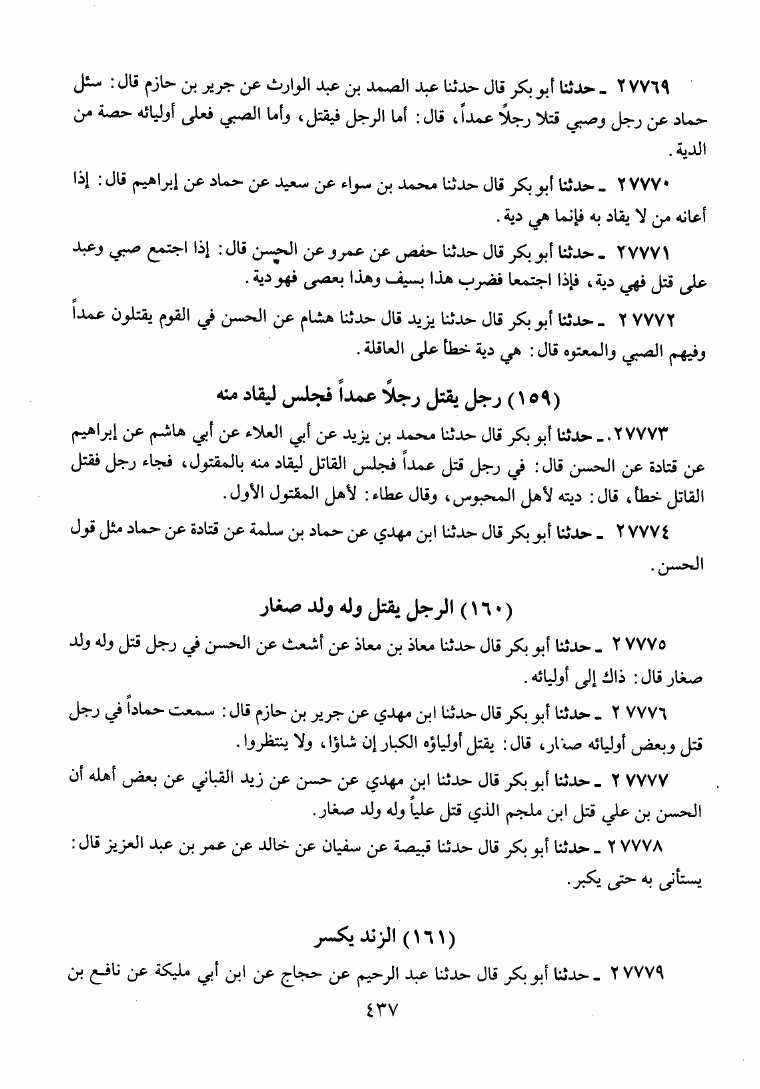 ٢٧٧٦٩ - حدثنا أبو بكر قال حدثنا عبد الصمد بن عبد الوارث عن جرير بن حازم قال: سئل
حماد عن رجل وصبي قتلا رجلاً عمداً، قال: أما الرجل فيقتل، وأما الصبي فعلى أوليائه حصة من
الدية.
٢٧٧٧٠ - حدثنا أبو بكر قال حدثنا محمد بن سواء عن سعيد عن حماد عن إبراهيم قال: إذا
أعانه من لا يقاد به فإنما هي دية.
٢٧٧٧١ - حدثنا أبو بكر قال حدثنا حفص عن عمرو عن الحسن قال: إذا اجتمع صبي وعبد
على قتل فهي دية، فإذا اجتمعا فضرب هذا بسيف وهذا بعصى فهو دية.
٢٧٧٧٢ - حدثنا أبو بكر قال حدثنا يزيد قال حدثنا هشام عن الحسن في القوم يقتلون عمداً
وفيهم الصبي والمعتوه قال: هي دية خطأ على العاقلة.
(١٥٩) رجل يقتل رجلاً عمداً فجلس ليقاد منه
٢٧٧٧٣ - حدثنا أبو بكر قال حدثنا محمد بن يزيد عن أبي العلاء عن أبي هاشم عن إبراهيم
عن قتادة عن الحسن قال: في رجل قتل عمداً فجلس القاتل ليقاد منه بالمقتول، فجاء رجل فقتل
القاتل خطأ، قال: ديته لأهل المحبوس، وقال عطاء: لأهل المقتول الأول.
٢٧٧٧٤ - حدثنا أبو بكر قال حدثنا ابن مهدي عن حماد بن سلمة عن قتادة عن حماد مثل قول
الحسن.
(١٦٠) الرجل يقتل وله ولد صغار
٢٧٧٧٥ - حدثنا أبو بكر قال حدثنا معاذ بن معاذ عن أشعث عن الحسن في رجل قتل وله ولد
صغار قال: ذاك إلى أوليائه.
٢٧٧٧٦ - حدثنا أبو بكر قال حدثنا ابن مهدي عن جرير بن حازم قال: سمعت حماداً في رجل
قتل وبعض أوليائه صغار، قال: يقتل أولياؤه الكبار إن شاؤا، ولا ينتظروا.
٢٧٧٧٧ - حدثنا أبو بكر قال حدثنا ابن مهدي عن حسن عن زيد القباني عن بعض أهله أن
الحسن بن علي قتل ابن ملجم الذي قتل علياً وله ولد صغار.
٢٧٧٧٨ - حدثنا أبو بكر قال حدثنا قبيصة عن سفيان عن خالد عن عمر بن عبد العزيز قال:
يستأنى به حتى يكبر.
(١٦١) الزند يكسر
٢٧٧٧٩ - حدثنا أبو بكر قال حدثنا عبد الرحيم عن حجاج عن ابن أبي مليكة عن نافع بن
٤٣٧